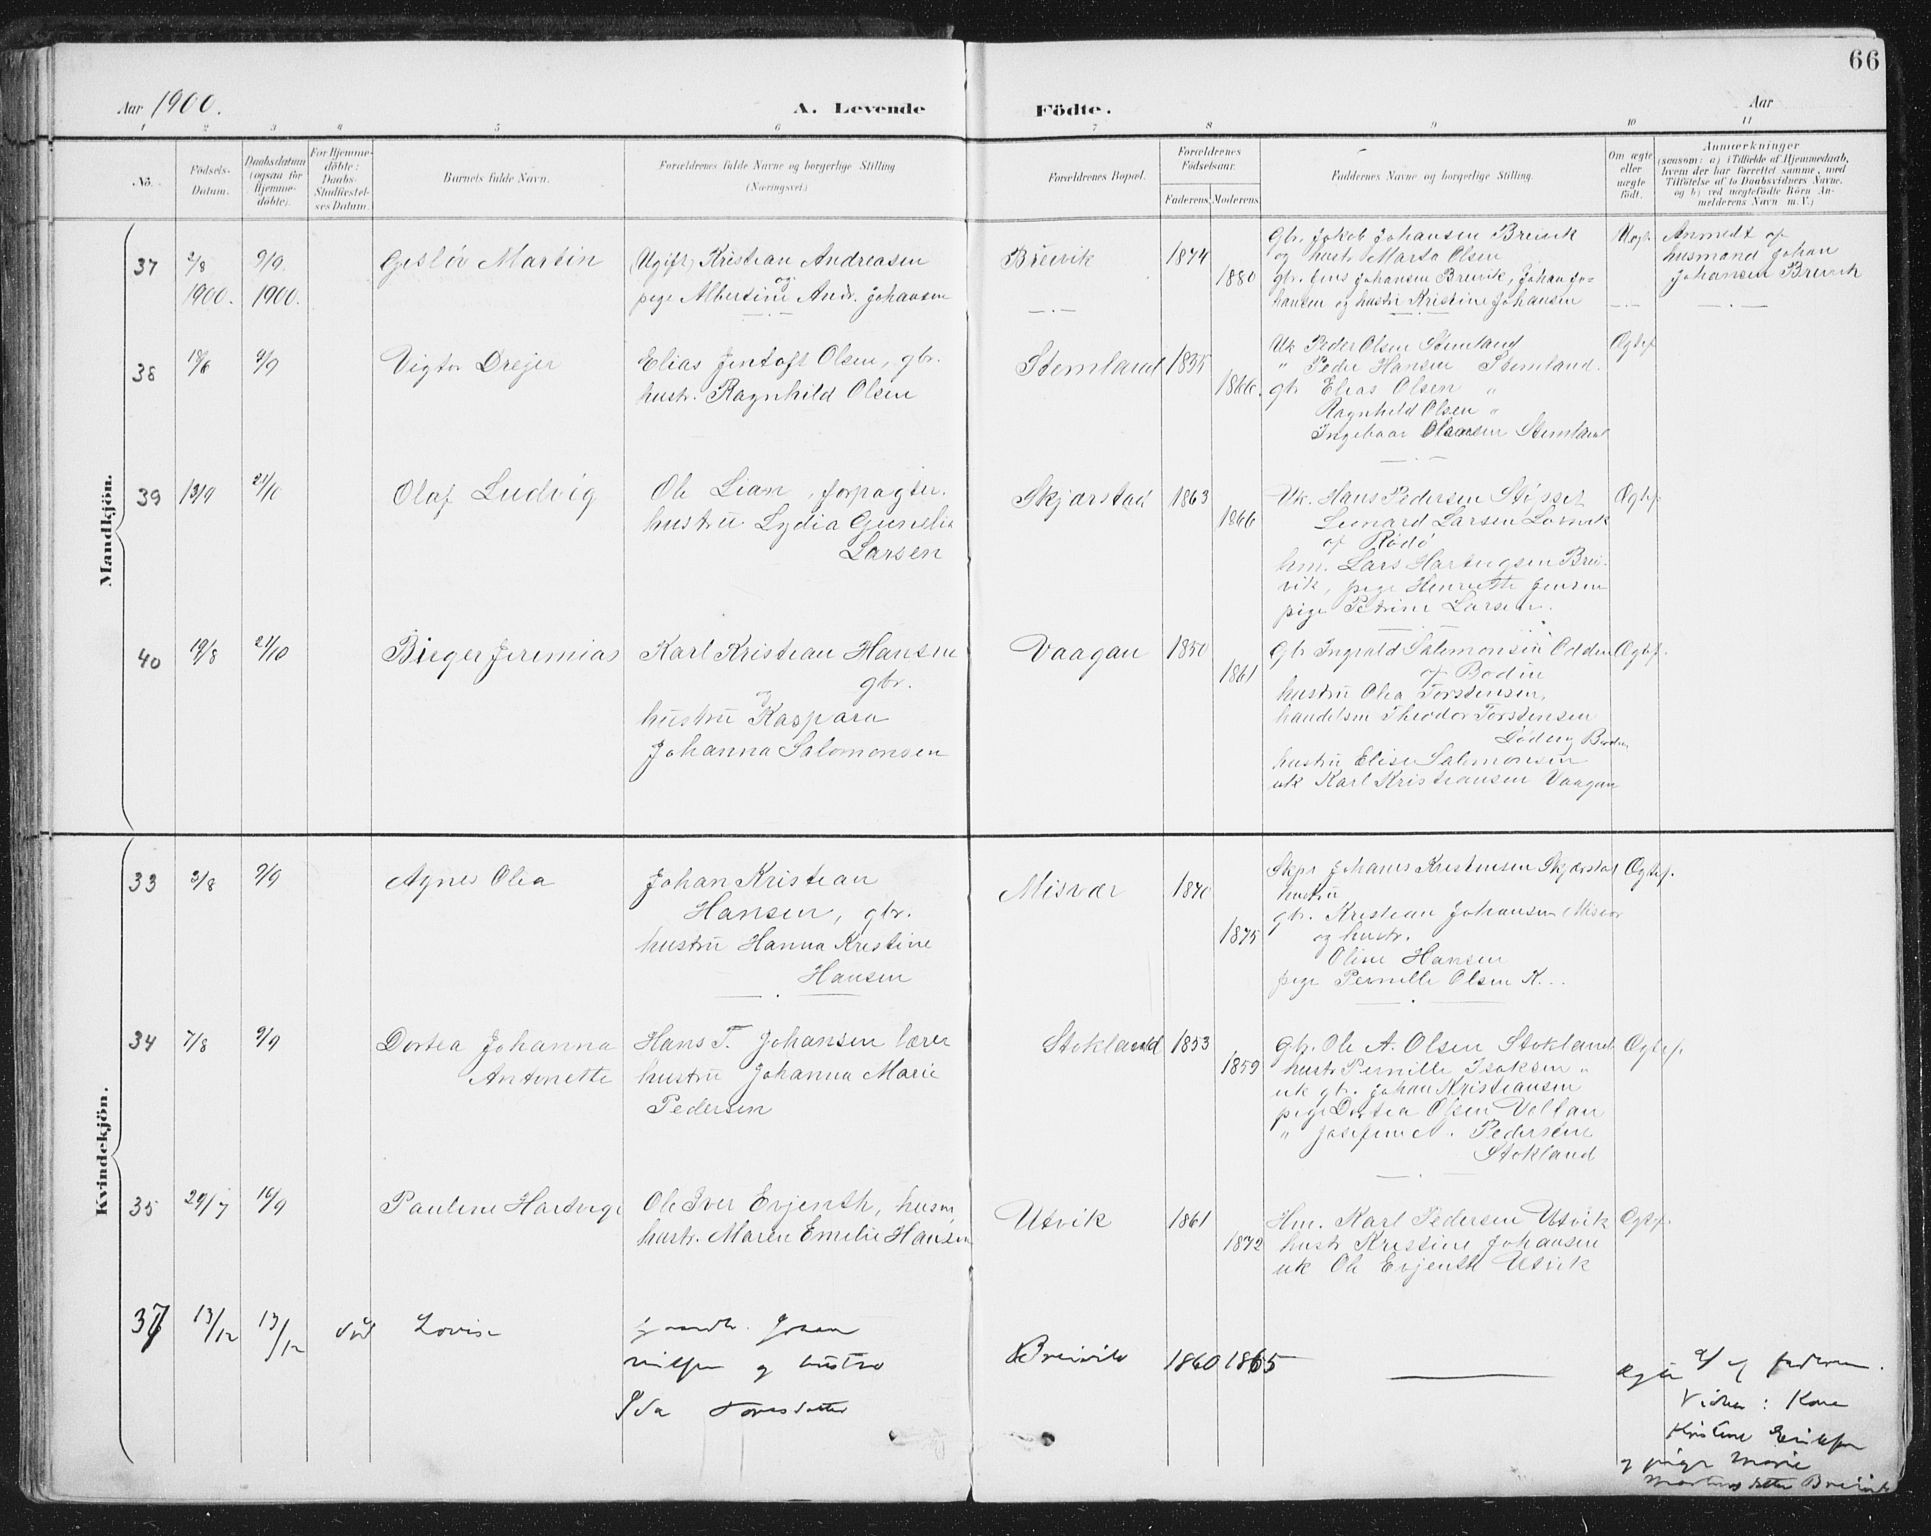 66
Aar 1900.
A. Levende
Födte.
Aar
1 2 3 4 5 6 7 8 9 10 11
No.
Födsels-
Datum.
Daabsdatum
(ogsaa for
Hjemme-
döbte).
For Hjemme-
döbte:
Daabs-
Stadfæstel-
ses Datum.
Barnets fulde Navn.
Forældrenes fulde Navne og borgerlige Stilling
(Næringsvei.)
Forældrenes Bopæl.
Forældrenes
Födselsaar.
Faderens. Moderens.
Faddernes Navne og borgerlige Stilling.
Om ægte
eller
uægte
født.
Anmærkninger
(saasom: a) i Tilfælde af Hjemmedaab,
hvem der har forrettet samme, med
Tilföielse af to Daabsvidners Navne,
og b) ved uægtefödte Börn An-
melderens Navn m. V.)
Mandkjön.
37
2/8
1900.
9/9
1900.
Martin
(Ugift) Kristian Andreasen
og
pige Albertine Andr. Johansen
Breivik
1874
1880
gbr. Jakob Johansen Breivik
og hustr. Marta Olsen
gbr. Jens Johansen Breivik, Johan Jo-
hansen og hustru Kristine Johansen
Uægt.
Anmeldt af
husmand Johan
Johansen Breivik
38
18/6
9/9
Vigtor Drejer
Elias Jentoft Olsen, gbr.
hustr. Ragnhild Olsen
Stemland
1835
1866.
Uk Peder Olsen Stemland
" Peder Hansen Stemland.
gbr Elias Olsen "
Ragnhild Olsen "
Olausen Stemland
Ægtef
39
13/9
21/10
Olaf Ludvig
Ole Lian, forpagter.
hustru Lydia
Larsen
Skjærstad
1863
1866
Uk. Hans Pedersen
Leonard Larsen
af Rødø
hm. Lars Hartvigsen Brei-
vik, pige Henriette Jensen
pige Petrine Larsen.
Ægtef
40
19/8
21/10
Birger Jeremias
Karl Kristian Hansen
gbr.
hustru Kaspara
Johanna Salomonsen
Vaagan
1850
1861
Gbr Ingvald Salomonsen Odden
af Bodin
hustru Olea Torstensen,
handelsm Theodor Torstensen
Bodin
hustru Elise Salomonsen
uk Karl Kristiansen Vaagan
Ægtef.
Kvindekjön.
33
2/8
9/9
Agnes Olea
Johan Kristian
Hansen, gbr.
hustru Hanna Kristine
Hansen
Misvær
1870
1875
Skpr Johans Kristensen Skjærstad
hustru
gbr. Kristian Johansen Misvær
og hustr.
Oline Hansen
pige Pernille Olsen K...
Ægtef.
34
7/8
9/9
Dortea Johanna
Antonette
Hans T. Johansen lærer
hustru Johanna Marie
Pedersen
Stokland
1853
1859
gbr. Ole A. Olsen Stokland
hustr Pernille Isaksen "
uk gbr. Johan Kristiansen
pige Dortea Olsen Veltan
" Josefine N. Pedersene
Stokland
Ægtef.
35
29/7
16/9
Pauline Hartvige
Ole Iver Evjenth, husm.
hustr. Maren Emelie Hansen
Utvik
1861
1872
Hm. Karl Pedersen Utvik
hustr Kristine Johansen
uk Ole Evjenth Utvik
Ægtef.
37
13/12
13/12
død
Lovise
gaardbr. Johan
Nilsen og hustru
Ida Toresdatter
Breivik
1860 1865
ægte
af faderen.
Vidner: Kone
Kristine Eriksen
og pige Marie
Martinsdatter Breivik